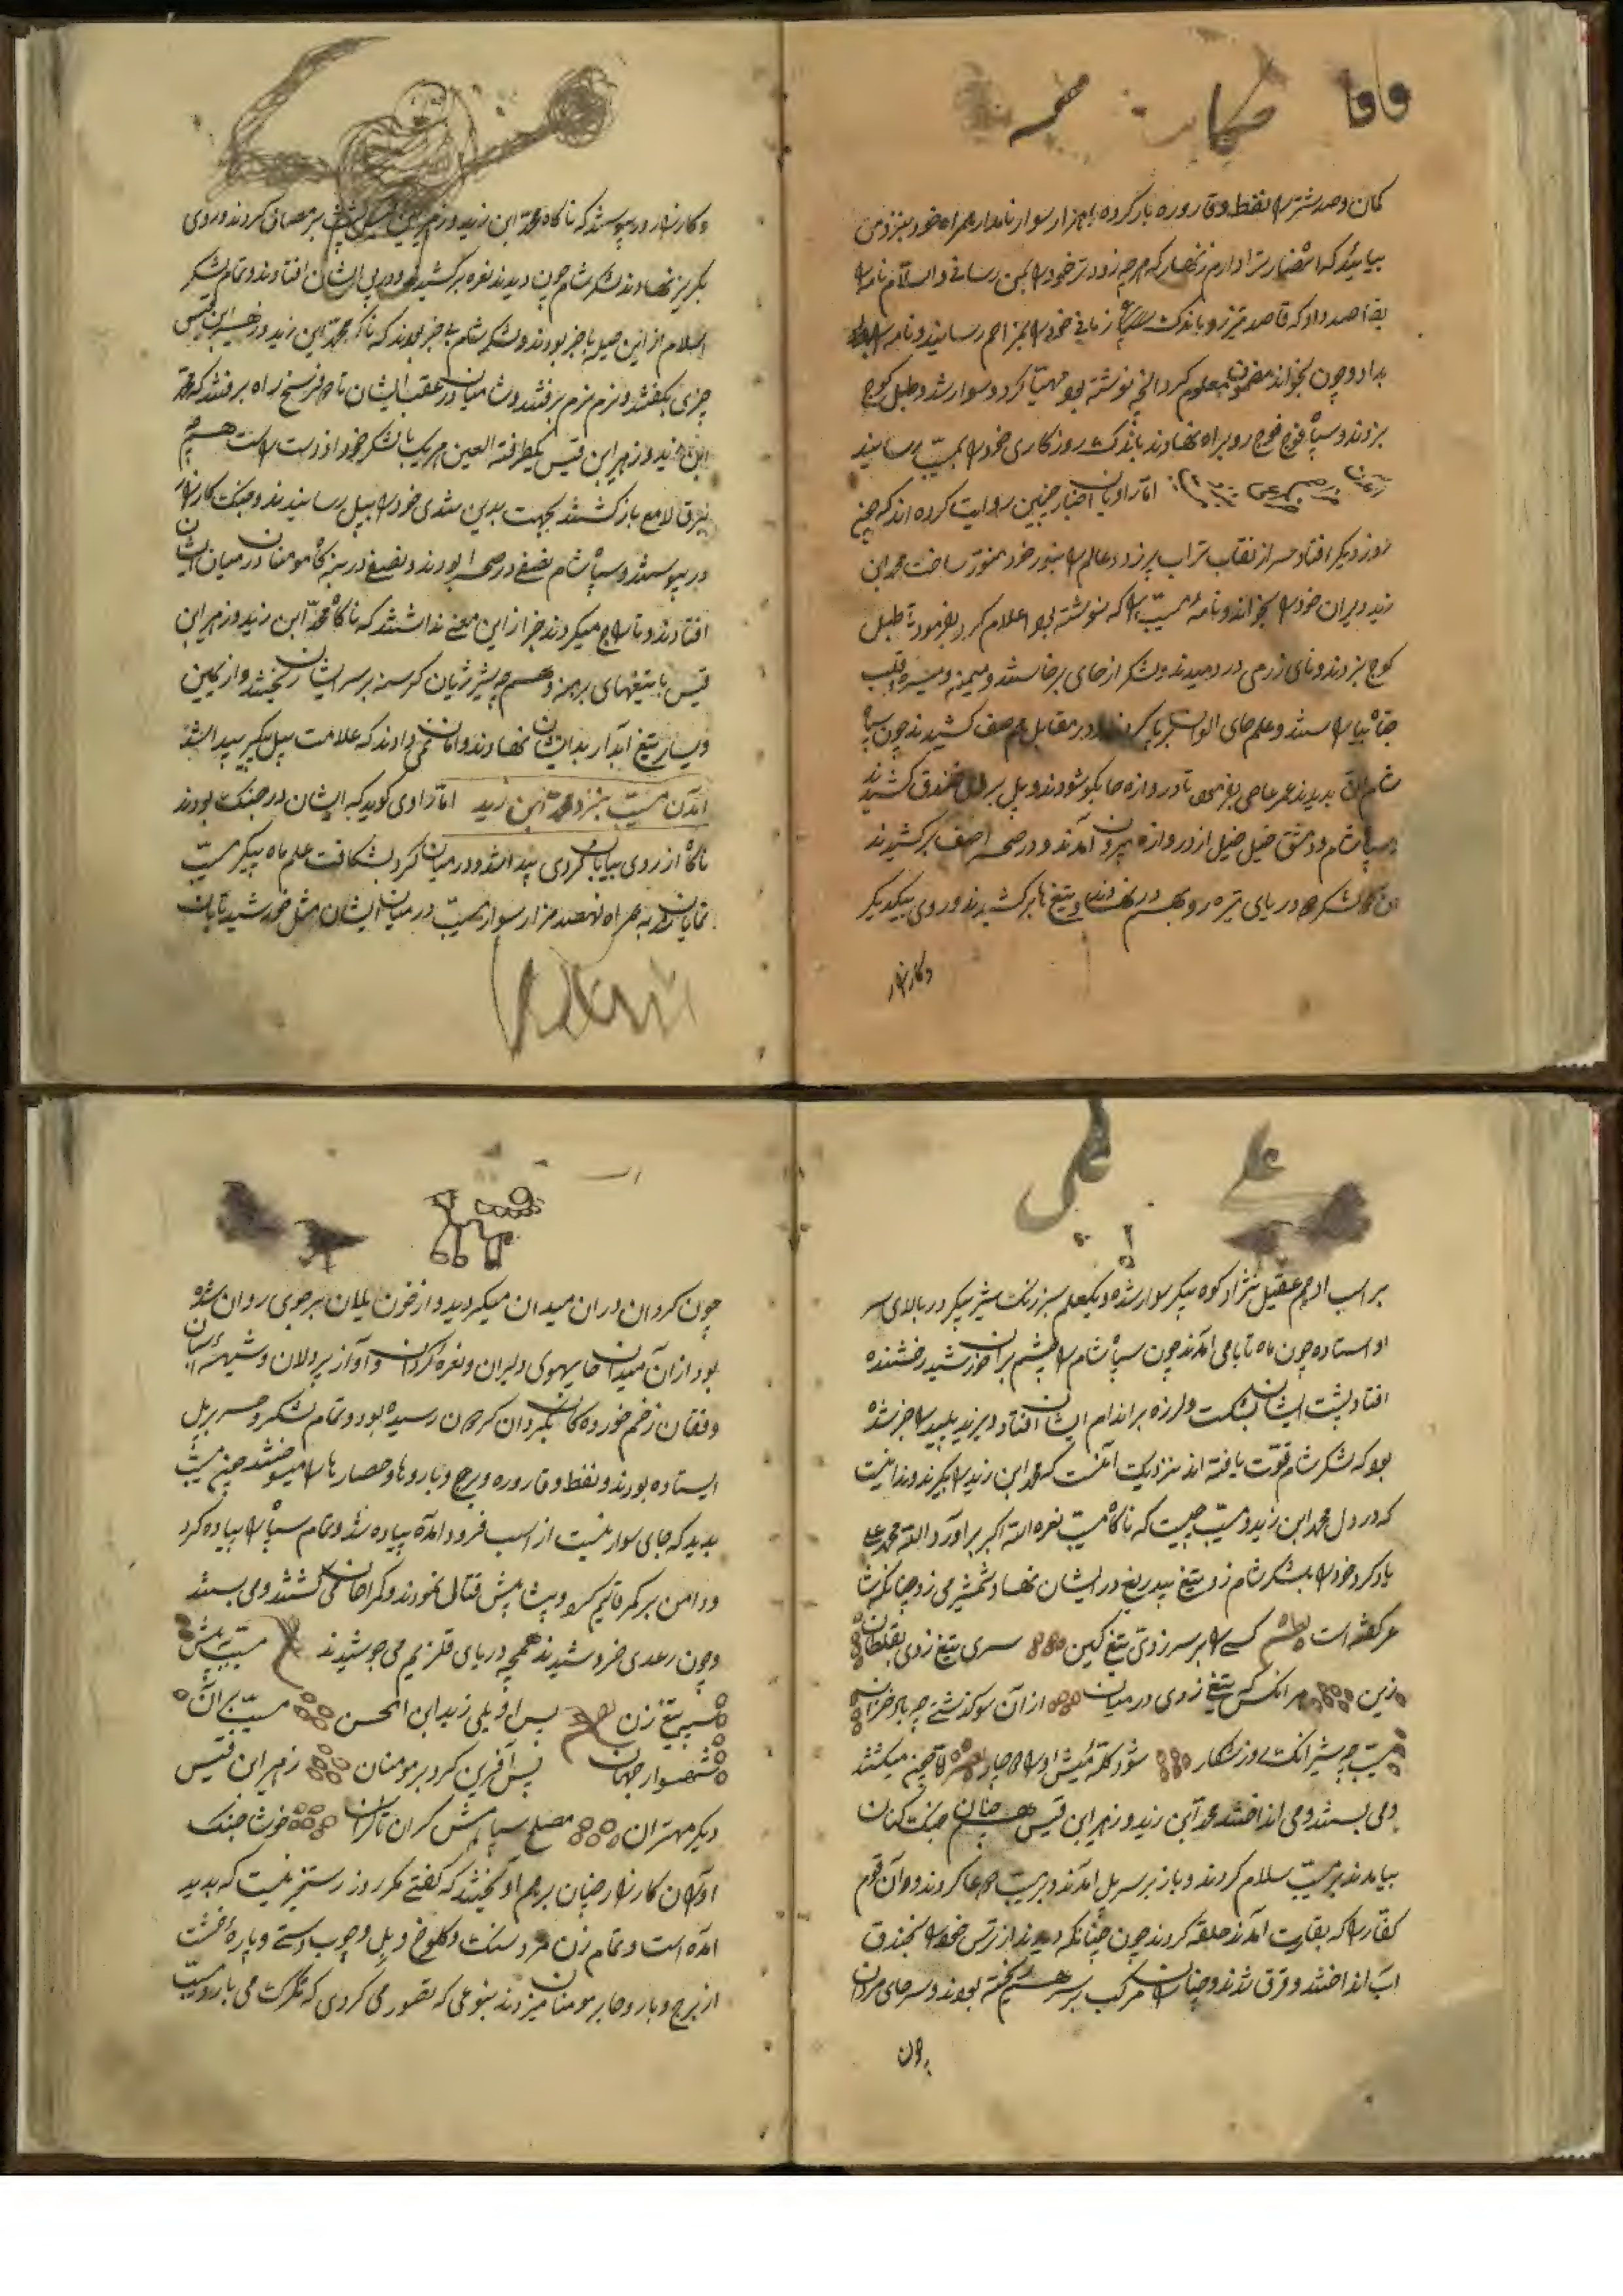 کمان و صد شتر را نفط و قاروره بار کرده با هزار سوار نامدار همراه خود بنزد من
بیائید که انتظار شما دارم زنهار که هر چه زودتر خود را بمن رسانی والسلام نامه را
بقاصد داد که قاصد تیز رو باندک زمانی خود را رسانید و نامه را
بداد و چون بخواند مضمون معلوم کرد آنچه نوشته بود مهیا کرد و سوار شد و طبل کوچ
بزدند و سپاه فوج فوج رو براه نهادند باندک روزکاری خود را بمسیب رسانید
اما راویان اخبار چنین روایت کرده اند که چون
روز دیکر افتاد سر از نقاب تراب برزد و عالم را بنور خود منور ساخت محمد ابن
زید دبیران خود را بخواند و نامهٔ مسیب را که نوشته بود اعلام کرد بفرمود تا طبل
کوچ بزدند و نای زرمی در دمیدند و لشکر از جای برخاستند و میمنه و میسره و قلب
جناح بیاراستند و علم های الوان برپا کردند در مقابل هم صف کشیدند چون سپاه
شام آن بدیدند عمر عاصی بفرمود تا دروازه ها بکشودند و پل بر خندق کشیدند
سپاه شام و دمشق خیل خیل از دروازه بیرون آمدند و در صحرا صف برکشیدند
لشکر چو دریای تیره رو بهم در نهادند و تیغ ها برکشیدند و روی بیکدیکر
و کارزار
و کارزار در پیوستند که ناکاه محمد ابن زید و زهیر ابن قیس پشت بر مصاف کردند و روی
بکریز نهادند لشکر شام چون دیدند نعره برکشیدند و در پی ایشان افتادند و تمام لشکر
اسلام از این حیله با خبر بودند و لشکر شام بی خبر بودند که ناکاه محمد ابن زید و زهیر ابن قیس
چزی بکفتند و نرم نرم برفتند و شامیان در عقب ایشان تا دو فرسخ راه برفتند که محمد
ابن زید و زهیر ابن قیس بیک طرفة العین هر یک با لشکر خود از دست راست هم
ببرق لامع باز کشتند بجهت بدین تندی خود را بپل رسانیدند و جنک کارزار
در پیوستند و سپاه شام نصفی در صحرا بودند و نصفی در بنه کاه مومنان در میان ایشان
افتادند و تاراج میکردند خبر از این معنی نداشتند که ناکاه محمد ابن زید و زهیر ابن
قیس با تیغهای برهنه و هم چو شیر ژیان کرسنه بر سر ایشان ریختند و از یمین
و یسار تیغ ابدار بدیشان نهادند و امان نمی دادند که علامت پیل پیکر پیدا شد
آمدن مسیب بنزد محمد ابن زید اما راوی کوید که ایشان در جنک بودند
ناکاه از روی بیابان کردی پیدا شد و در میان کرد بشکافت علم ماه پیکر مسیب
نمایان شد به همراه نهصد هزار سوار مسیب در میان ایشان مثل خورشید تابان
علی
علی
بر اسب ادهم عقیل نژاد کوه پیکر سوار شده و یکعلم سبز رنک شیر پیکر در بالای سر
او استاده چون ماه تابان می آمدند چون سپاه شام را چشم بر آن خورشید رخشنده
افتاد پشت ایشان بشکست و لرزه بر اندام ایشان افتاد و یزید پلید را خبر شده
بود که لشکر شام قوت یافته اند نزدیک آنست که محمد ابن زید را بکیرند و ندانست
که در دل محمد ابن زید و مسیب چیست که ناکاه مسیب نعره الله اکبر براورد و الله محمد علی
یاد کرد و خود را بلشکر شام زد و تیغ بیدریغ در ایشان نهاد و شمشیر می زد چنانکه شا
عر کفته است نظم کسی را بر سر زدی تیغ کین سری تیغ زدی بغلطان
زین هر انکس که تیغ زدی در میان از آن سو کذشتی چو باد خزان
مسیب چو شیر انکه روز شکار شود کله میش او را چهار القصه چنین میکشتند
و می بستند و می انداختند محمد ابن زید و زهیر ابن قیس همچنان جنک کنان
بیامدند بر مسیب سلام کردند و باز بر سر پل آمدند و بر مسیب دعا کردند و آن قوم
کفار را که بغارت آمدند حلقه کردند چون چنانکه دیدند از ترس خود را بخندق
اب انداختند و غرق شدند و چنان مرکب بر سر هم ریخته بودند و سرهای مردان
چون
چون کردان در ان میدان میکردید و از خون یلان بر جوی روان شده
بود از آن میدان های هوی دلیران و نعره کردان و آواز پردلان و شیههٔ اسبان
و فغان زخم خورده کان بکردان کردان رسیده بود و تمام لشکر و حشر بر پل
ایستاده بودند و نفط و قاروره و برج و باروها و حصارها را میسوختند چون مسیب
بدید که جای سوار نیست از اسب فرود آمده پیاده شد و تمام سپاه را پیاده کرد
و دامن بر کمر قایم کرد و پیشاپیش قتال نمودند و کمراهان می کشتند و می بستند
و چون رعدی خروشیدند همچو دریای قلزم می جوشیدند مسیب به پیش
شیر تیغ زن پس او یلی زید ابن الحسن مسیب بر آن
شهسوار جهان پس آفرین کرد بر مومنان زهیر ابن قیس
دیکر مهتران مصلح سپاهش کران تا کران خوشا جنک
اوران کارزار چنان بر هم آویختند که کفتی مکر روز رستخیز نیست که پدید
آمده است و تمام زن مرد سنک و کلوخ و پل و چوب دستی و پارهٔ خشت
از برج و بارو ها بر مومنان میزدند بنوعی که تصور می کردی که تکرک می بارد مسیب